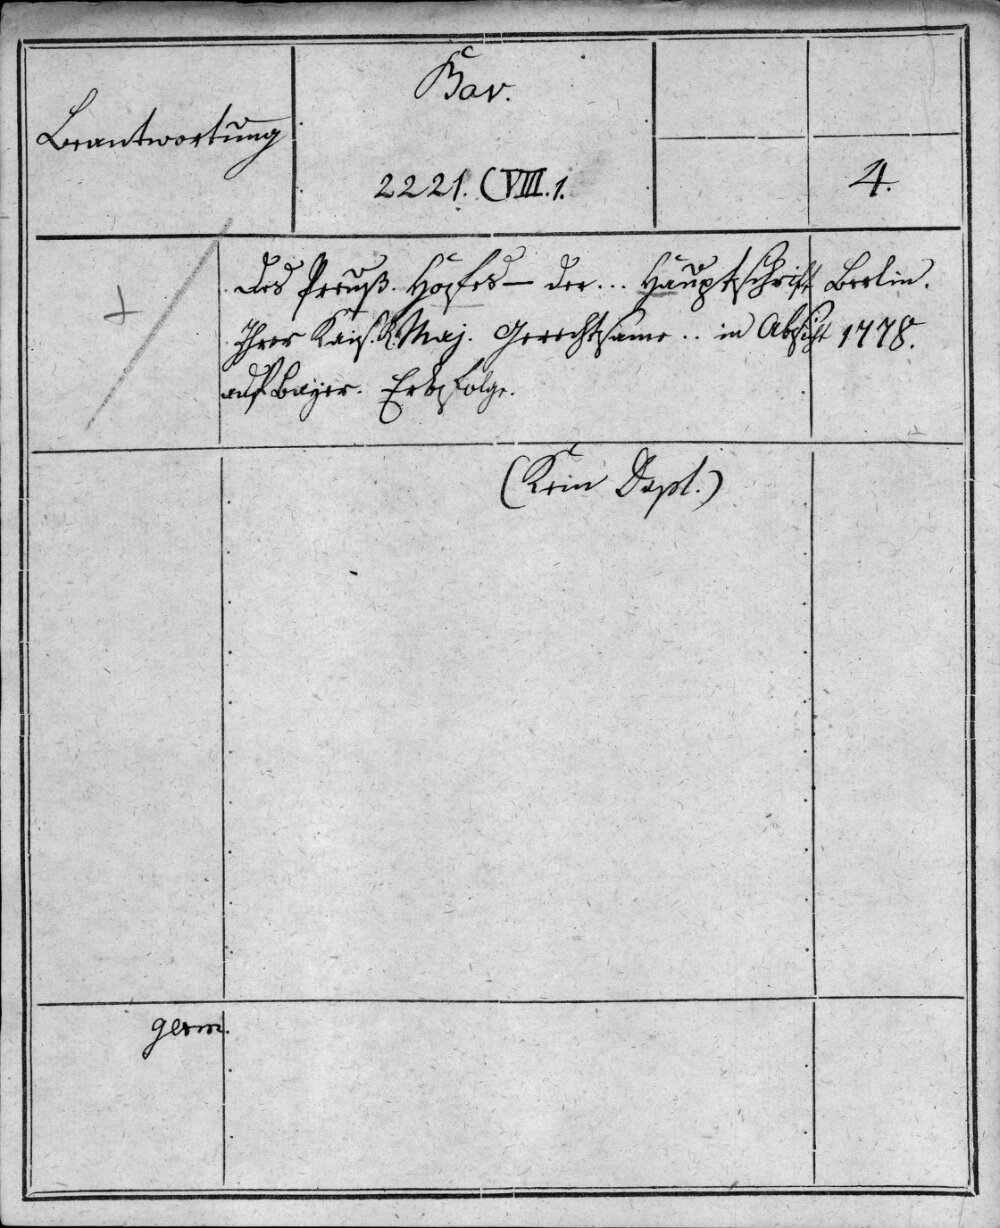 Bav.
Beantwortung
2221. (VIII.1.
4.
+
des Preuß. Hofes — der... Hauptschrift
Ihrer Kais. K. Maj. Gerechtsame .. in Absicht
auf Bayer. Erbfolge.
Berlin.
1778.
(Kein Dopl.)
germ.